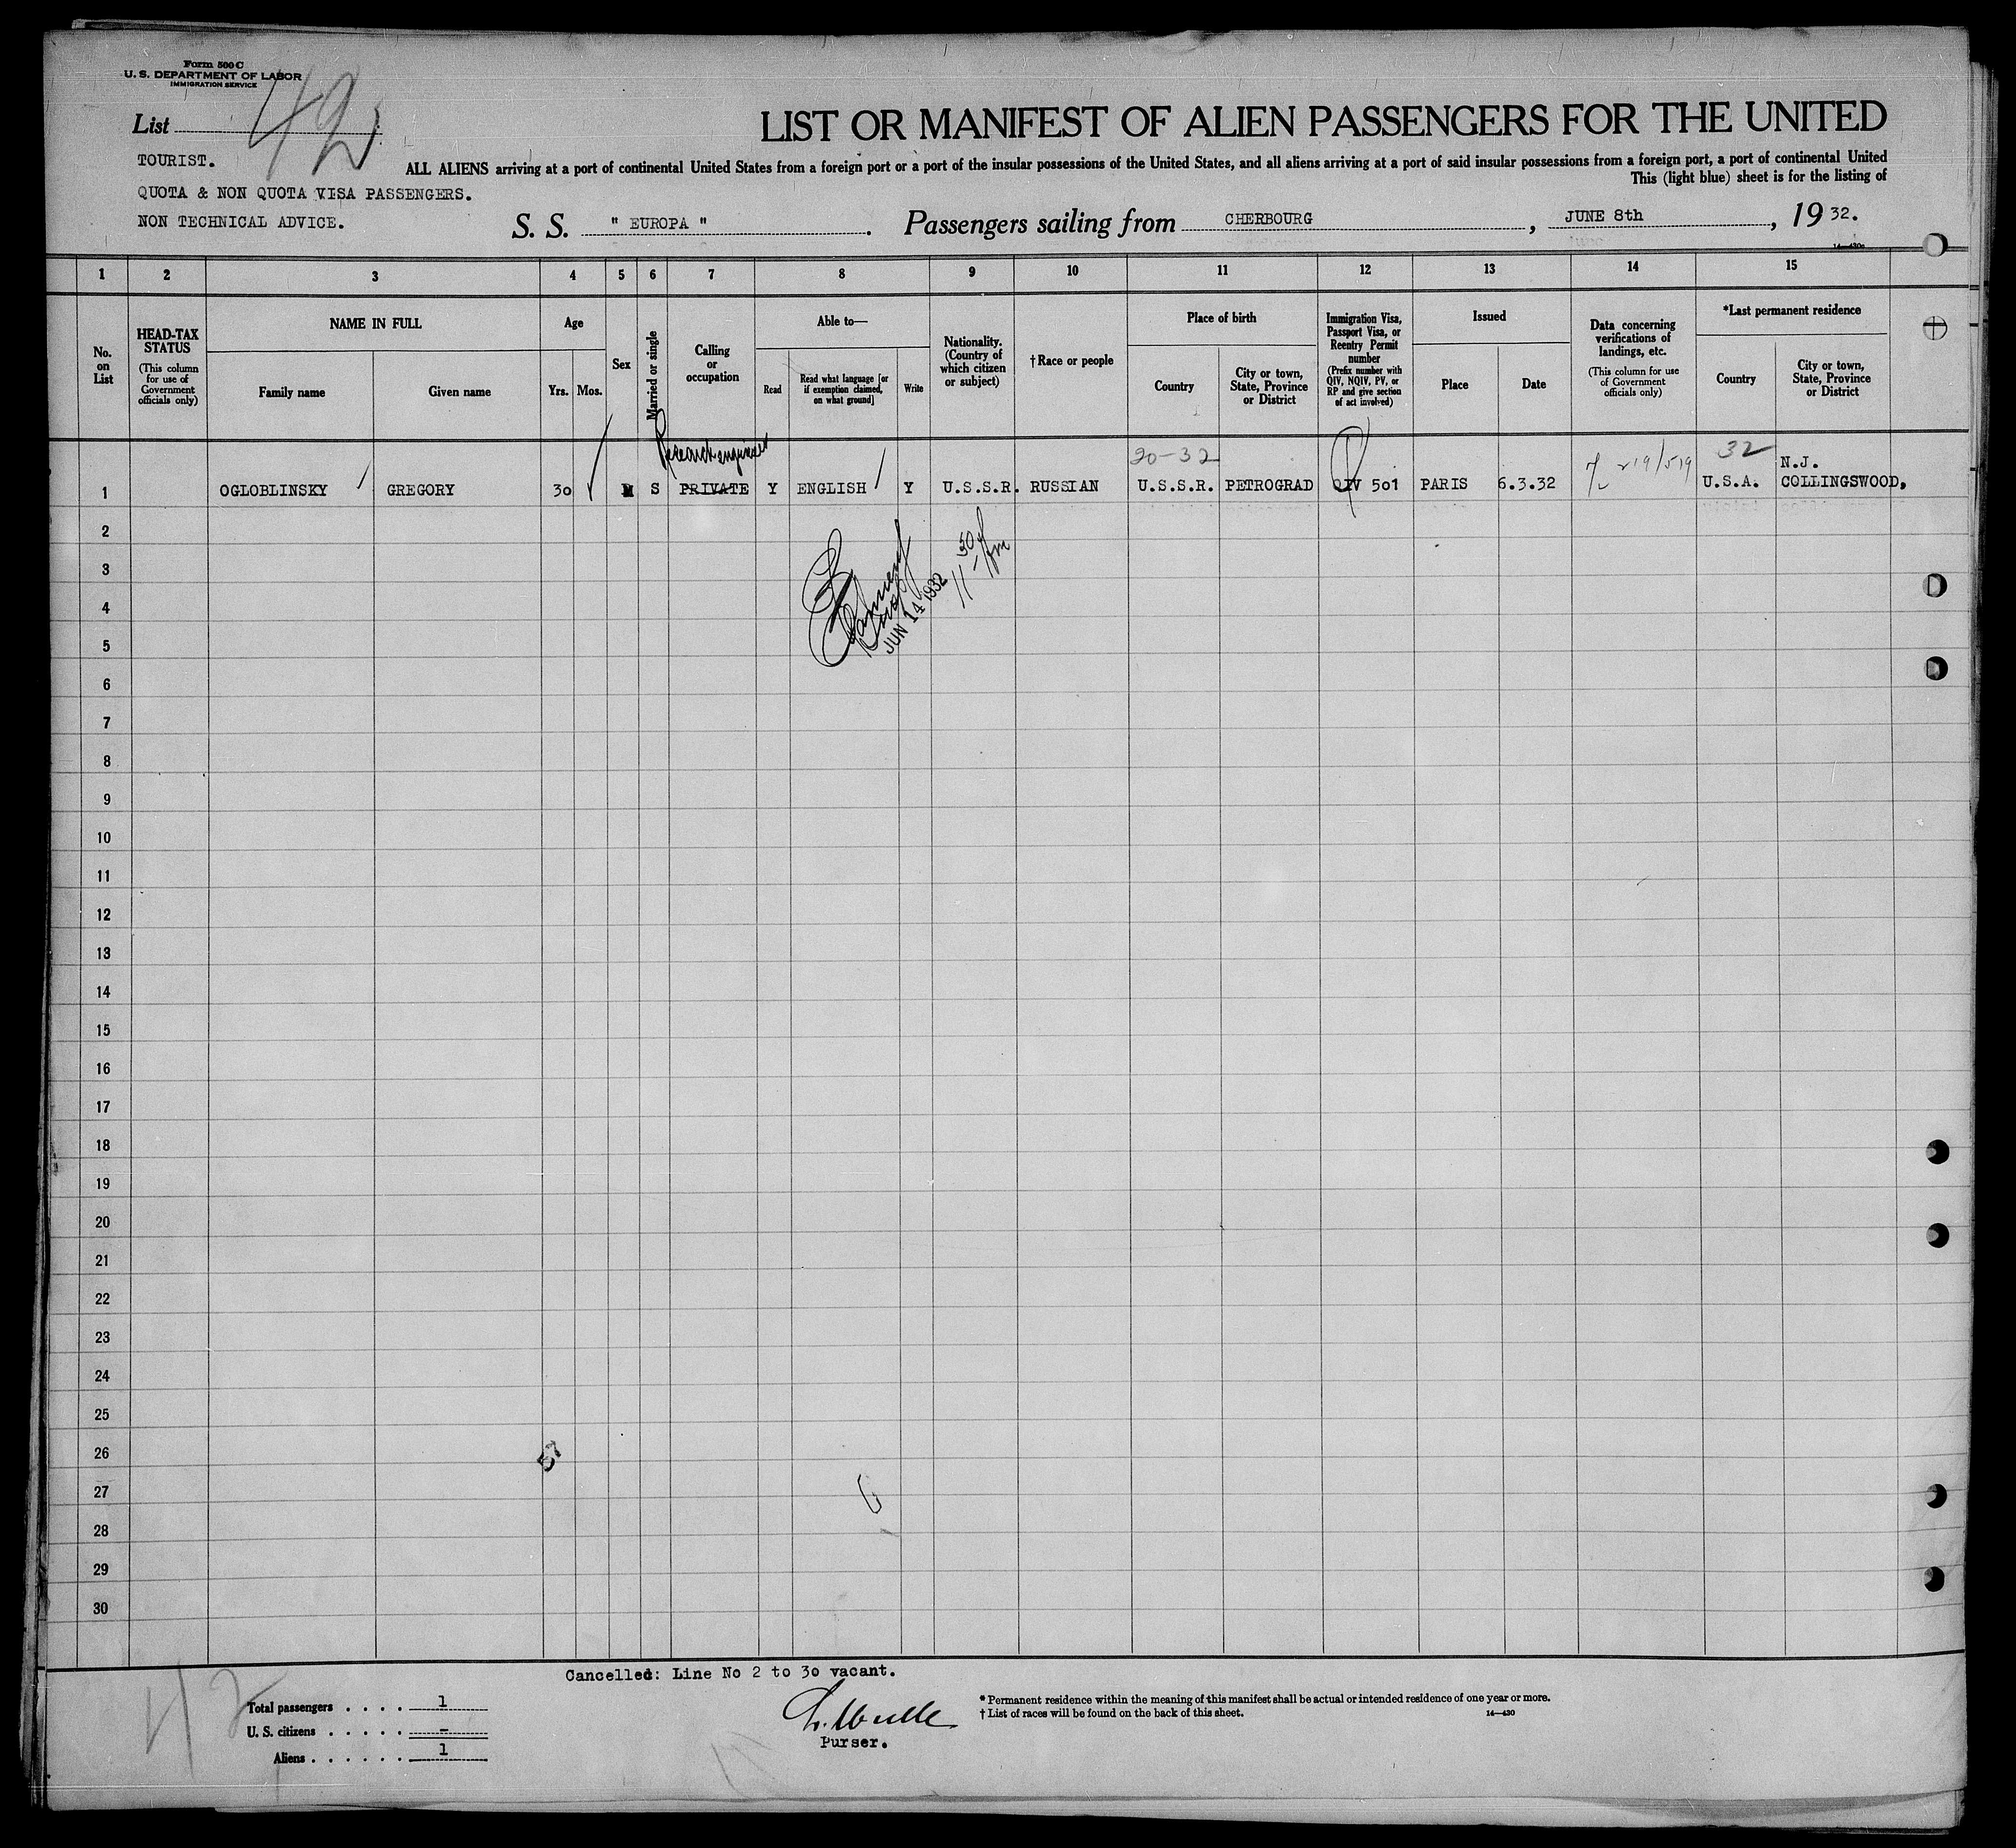 Form 500 C
U. S. DEPARTMENT OF LABOR
IMMIGRATION SERVICE
List 42
LIST OR MANIFEST OF ALIEN PASSENGERS FOR THE UNITED
TOURIST.
QUOTA & NON QUOTA VISA PASSENGERS.
NON TECHNICAL ADVICE.
ALL ALIENS arriving at a port of continental United States from a foreign port or a port of the insular possessions of the United States, and all aliens arriving at a port of said insular possessions from a foreign port, a port of continental United
This (light blue) sheet is for the listing of
S. S. " EUROPA ". Passengers sailing from CHERBOURG, JUNE 8th, 19 32.
14—430
1 2 3 4 5 6 7 8 9 10 11 12 13 14 15
No. on List
HEAD-TAX STATUS
(This column for use of Government officials only)
NAME IN FULL
Family name
Given name
Age
Yrs. Mos.
Sex
Married or single
Calling or occupation
Able to—
Read
Read what language [or if exemption claimed, on what ground]
Write
Nationality. (Country of which citizen or subject)
†Race or people
Place of birth
Country
City or town, State, Province or District
Immigration Visa, Passport Visa, or Reentry Permit number
(Prefix number with QIV, NQIV, PV, or RP and give section of act involved)
Issued
Place
Date
Data concerning verifications of landings, etc.
(This column for use of Government officials only)
*Last permanent residence
Country
City or town, State, Province or District
Research engineer
20-32
219/519
32
N.J.
1 OGLOBLINSKY GREGORY 30 M S PRIVATE Y ENGLISH Y U.S.S.R. RUSSIAN U.S.S.R. PETROGRAD QIV 501 PARIS 6.3.32 U.S.A. COLLINGSWOOD,
2
3
JUN 14 1932
11-30
4
5
6
7
8
9
10
11
12
13
14
15
16
17
18
19
20
21
22
23
24
25
26
57
27
28
29
30
Cancelled: Line No 2 to 30 vacant.
42
Total passengers . . . . 1
U. S. citizens . . . . . –
Aliens . . . . . . 1
Purser.
* Permanent residence within the meaning of this manifest shall be actual or intended residence of one year or more.
† List of races will be found on the back of this sheet.
14—430